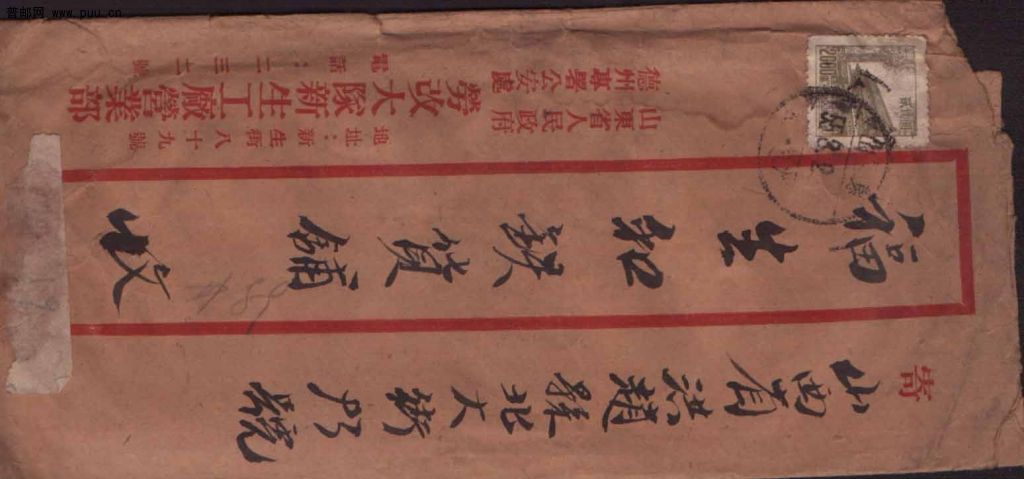 普邮网 www.puu.cn
寄
山西省洪趙縣北大街
號
福生和鉄貨舖 收
山東省人民政府
德州專署公安處
勞改大隊新生工廠營業部
地址：新生街八十九號
電話：